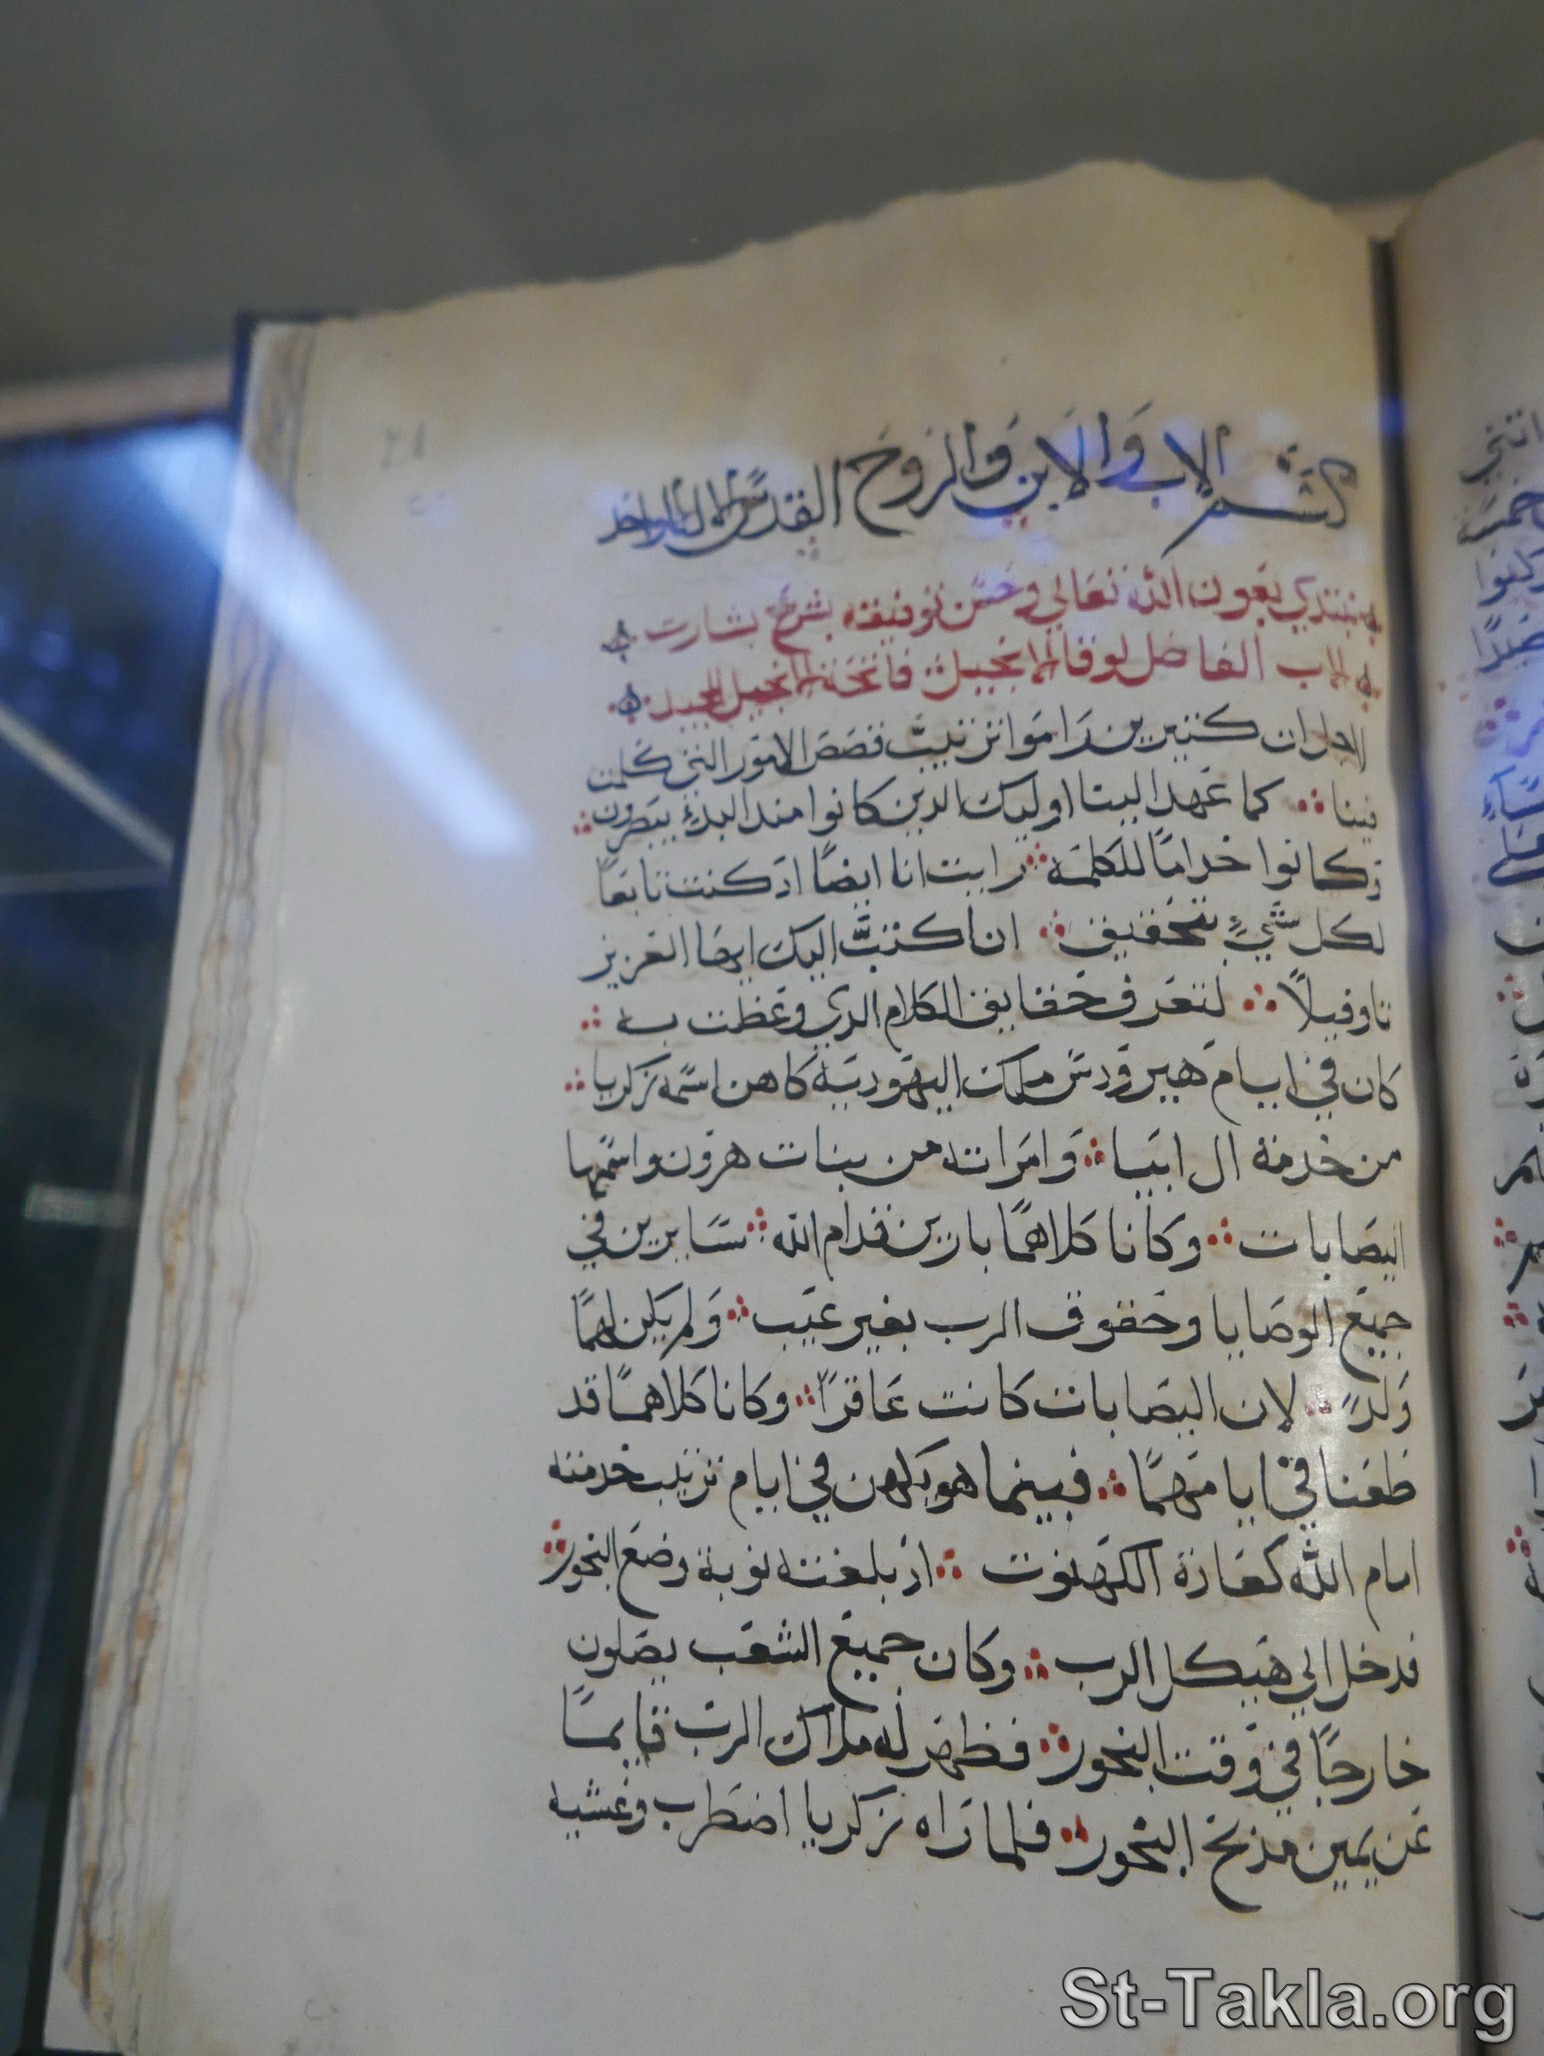 بسم الاب والابن والروح القدس الاله الواحد
نبتدي بعون الله تعالي وحسن توفيقه بشرح بشارت
الاب الفاضل لوقا الانجيلي فاتحة الانجيل المجيد
ان كثيرين راموا ترتيب قصص الامور التي كملت
فينا كما عهد الينا اوليك الدين كانوا مند البدء يبصرون
وكانوا خدامًا للكلمة رايت انا ايضًا اد كنت تابعًا
لكل شيءٍ بتحقيق ان اكتب اليك ايها العزيز
تاوفيلا لتعرف حقايق الكلام الدي وعظت به
كان في ايام هيرودس ملك اليهودية كاهن اسمه زكريا
من خدمة ال ابيا وامراته من بنات هرون واسمها
اليصابات وكانا كلاهما بارين قدام الله سايرين في
جميع الوصايا وحقوق الرب بغير عيب ولم يكن لهما
ولدً لان اليصابات كانت عاقرًا وكانا كلاهما قد
طعنا في ايامهما فبينما هو يكهن في ايام ترتيب خدمته
امام الله كعادة الكهنوت اذ بلغته نوبة وضع البخور
فدخل الي هيكل الرب وكان جميع الشعب يصلون
خارجًا في وقت البخور فظهر له ملاك الرب قايمًا
عن يمين مذبح البخور فلما راه زكريا اضطرب وغشيه
St-Takla.org